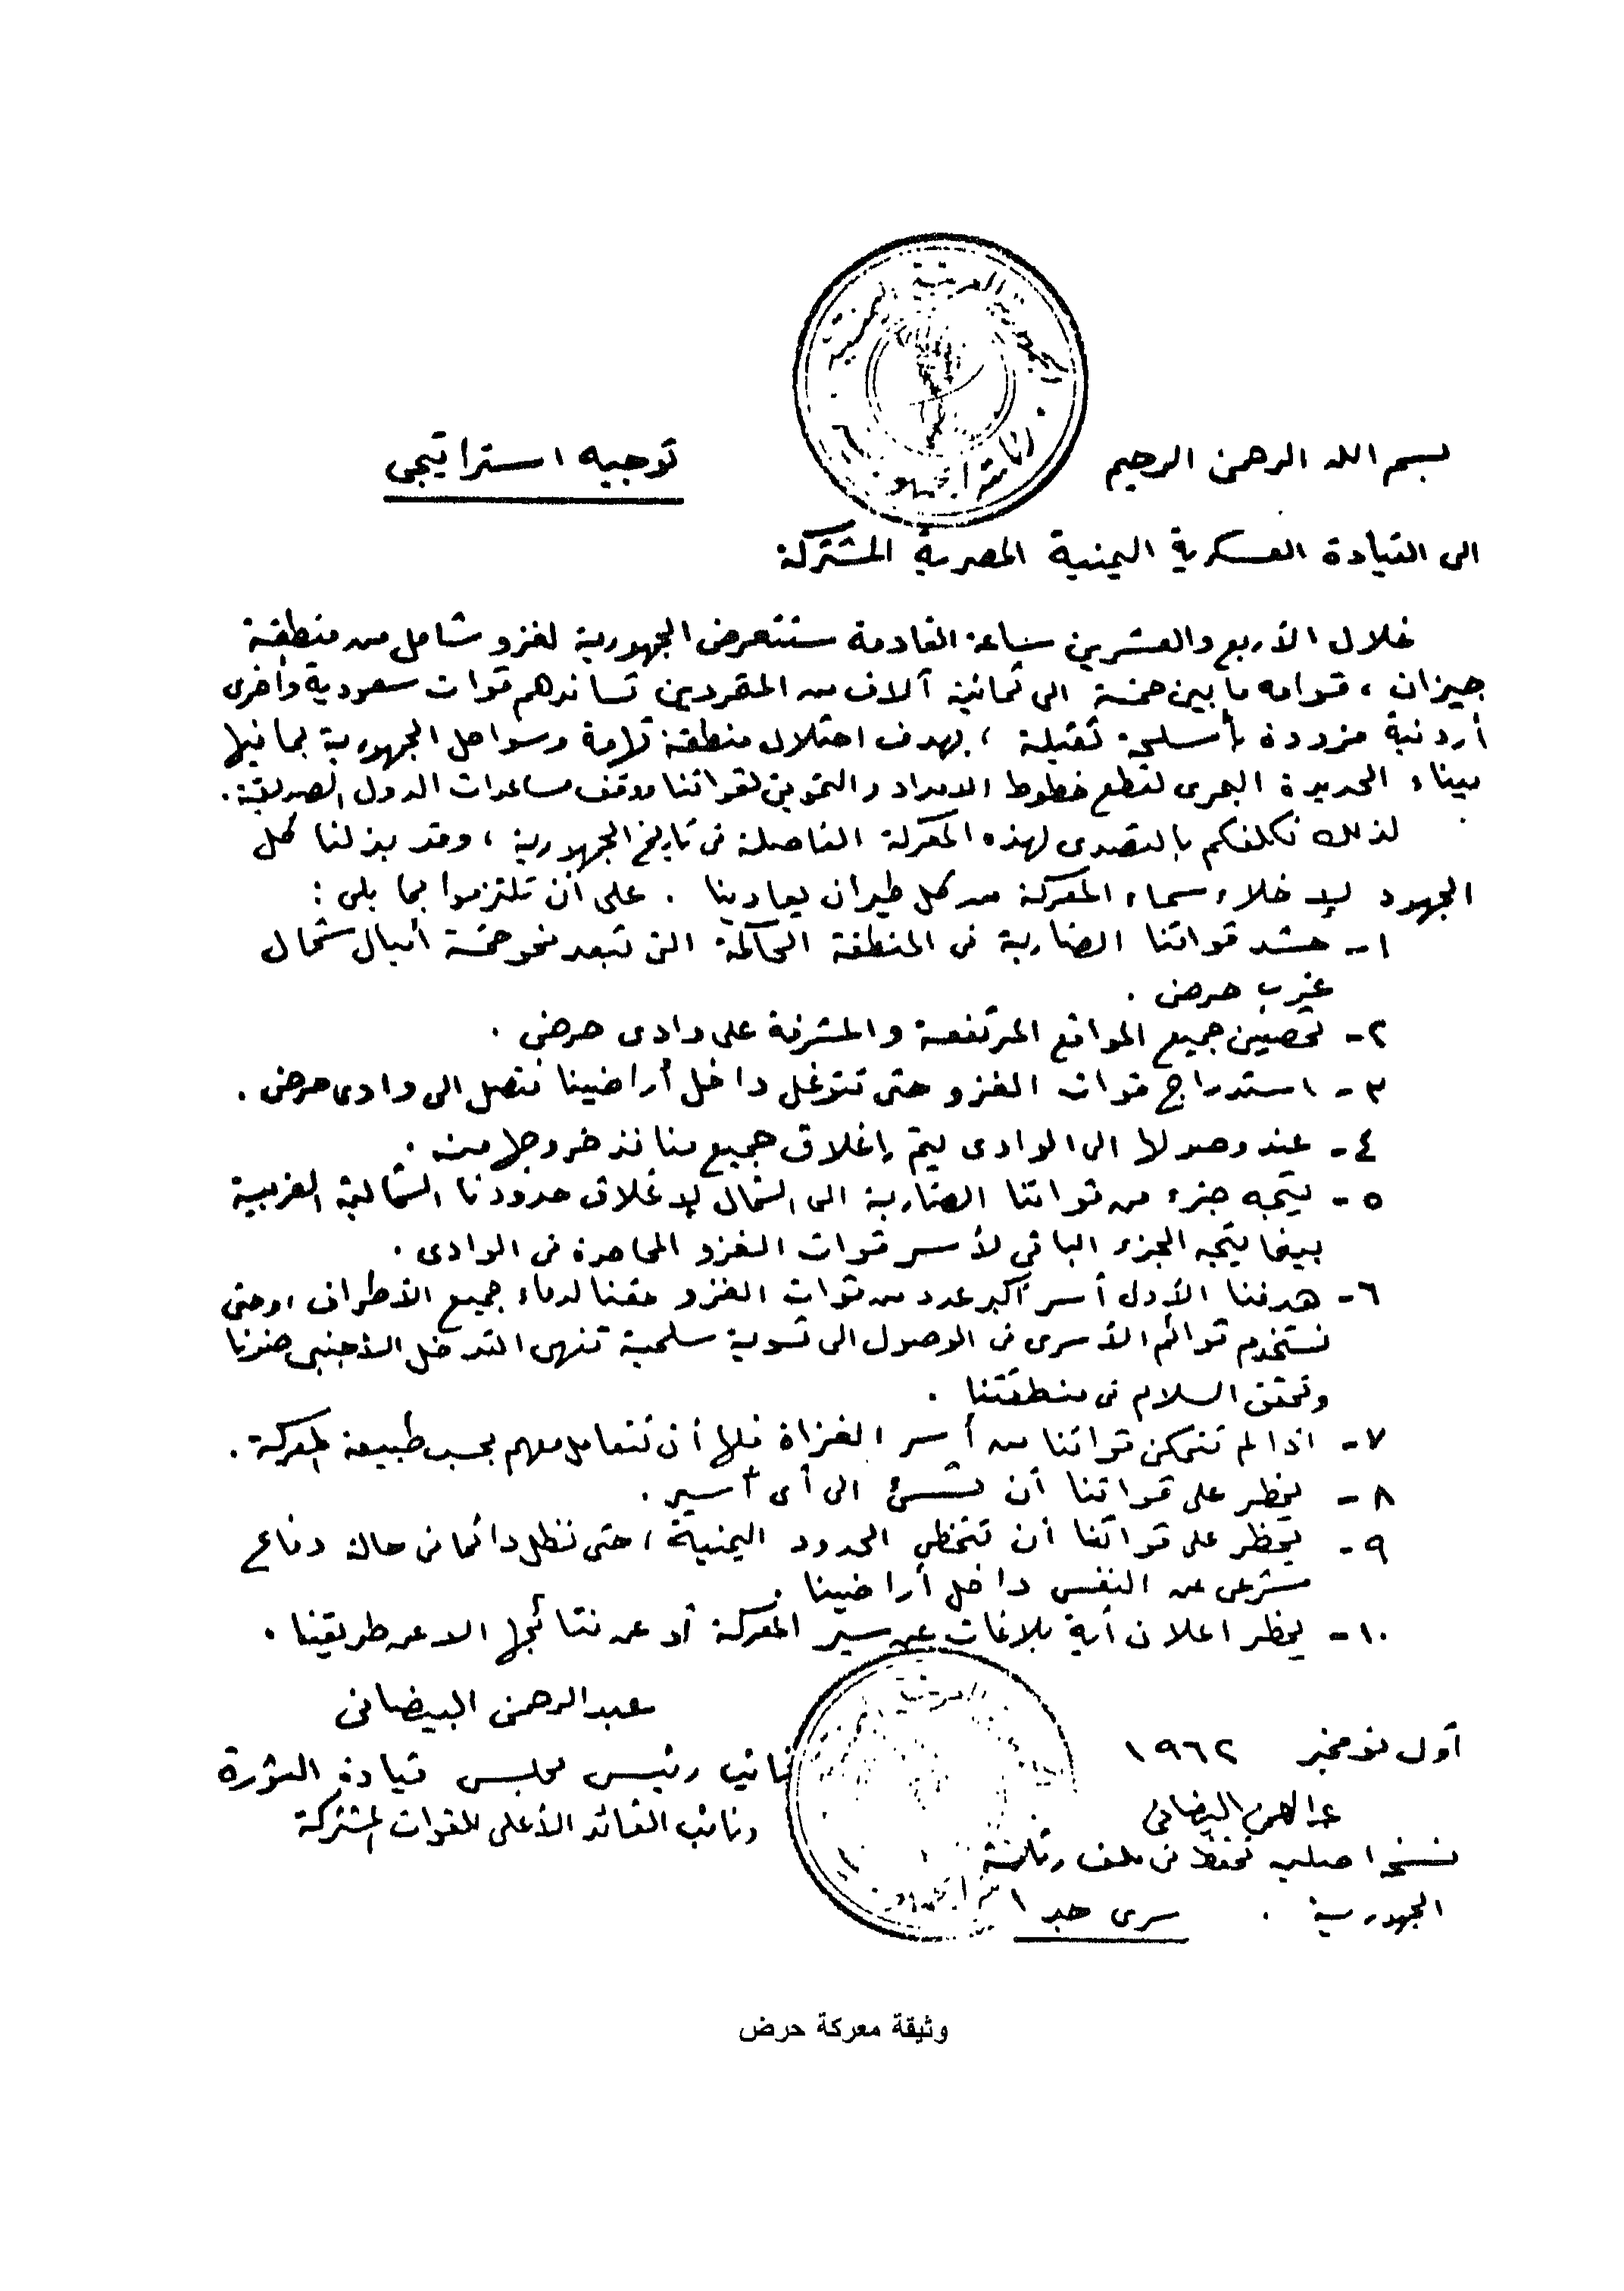 الجمهورية العربية اليمنية
رئاسة الجمهورية
بسم الله الرحمن الرحيم
توجيه استراتيجى
الى القيادة العسكرية اليمنية المصرية المشتركة
خلال الأربع والعشرين ساعة القادمة ستتعرض الجمهورية لغزو شامل من منطقة
جيزان ، قوامه ما بين خمسة الى ثمانية آلاف من المتمردين تساندهم قوات سعودية وأخرى
أردنية مزودة بأسلحة ثقيلة ، بهدف احتلال منطقة تهامة وسواحل الجمهورية بما فيها
ميناء الحديدة البحرى لقطع خطوط الامداد والتموين لقواتنا ووقف مساعدات الدول الصديقة .
لذلك نكلفكم بالتصدى لهذه المعركة الفاصلة فى تاريخ الجمهورية ، وقد بذلنا كل
الجهود لإخلاء سماء المعركة من كل طيران يعادينا . على أن تلتزموا بما يلى :
١ - حشد قواتنا الضاربة فى المنطقة الحاكمة التى تبعد نحو خمسة أميال شمال
غرب حرض .
٢ - تحصين جميع المواقع المرتفعة والمشرفة على وادى حرض .
٣ - استدراج قوات الغزو حتى تتوغل داخل أراضينا فتصل الى وادى حرض .
٤ - عند وصولها الى الوادى يتم إغلاق جميع منافذ خروجها منه .
٥ - يتجه جزء من قواتنا الضاربة الى الشمال لإغلاق حدودنا الشمالية الغربية
بينما يتجه الجزء الباقي لأسر قوات الغزو المحاصرة فى الوادى .
٦ - هدفنا الأول أسر أكبر عدد من قوات الغزو حقنا لدماء جميع الأطراف ، وحتى
نستخدم قوائم الأسرى فى الوصول الى تسوية سلمية تنهى التدخل الأجنبى ضدنا
وتحقق السلام فى منطقتنا .
٧ - اذا لم تتمكن قواتنا من أسر الغزاة فلها أن تتعامل معهم بحسب طبيعة المعركة .
٨ - يحظر على قواتنا أن تسئ الى أى أسير .
٩ - يحظر على قواتنا أن تتخطى الحدود اليمنية ، حتى نظل دائما فى حالة دفاع
شرعى عن النفس داخل أراضينا .
١٠ - يحظر اعلان أية بلاغات عن سير المعركة أو عن نتائجها الا عن طريقنا .
عبد الرحمن البيضانى
نائب رئيس مجلس قيادة الثورة
ونائب القائد الأعلى للقوات المشتركة
أول نوفمبر ١٩٦٢
عبد الرحمن البيضانى
نسخة اصلية تحفظ فى ملف رئاسة
الجمهورية . سرى جدا
وثيقة معركة حرض